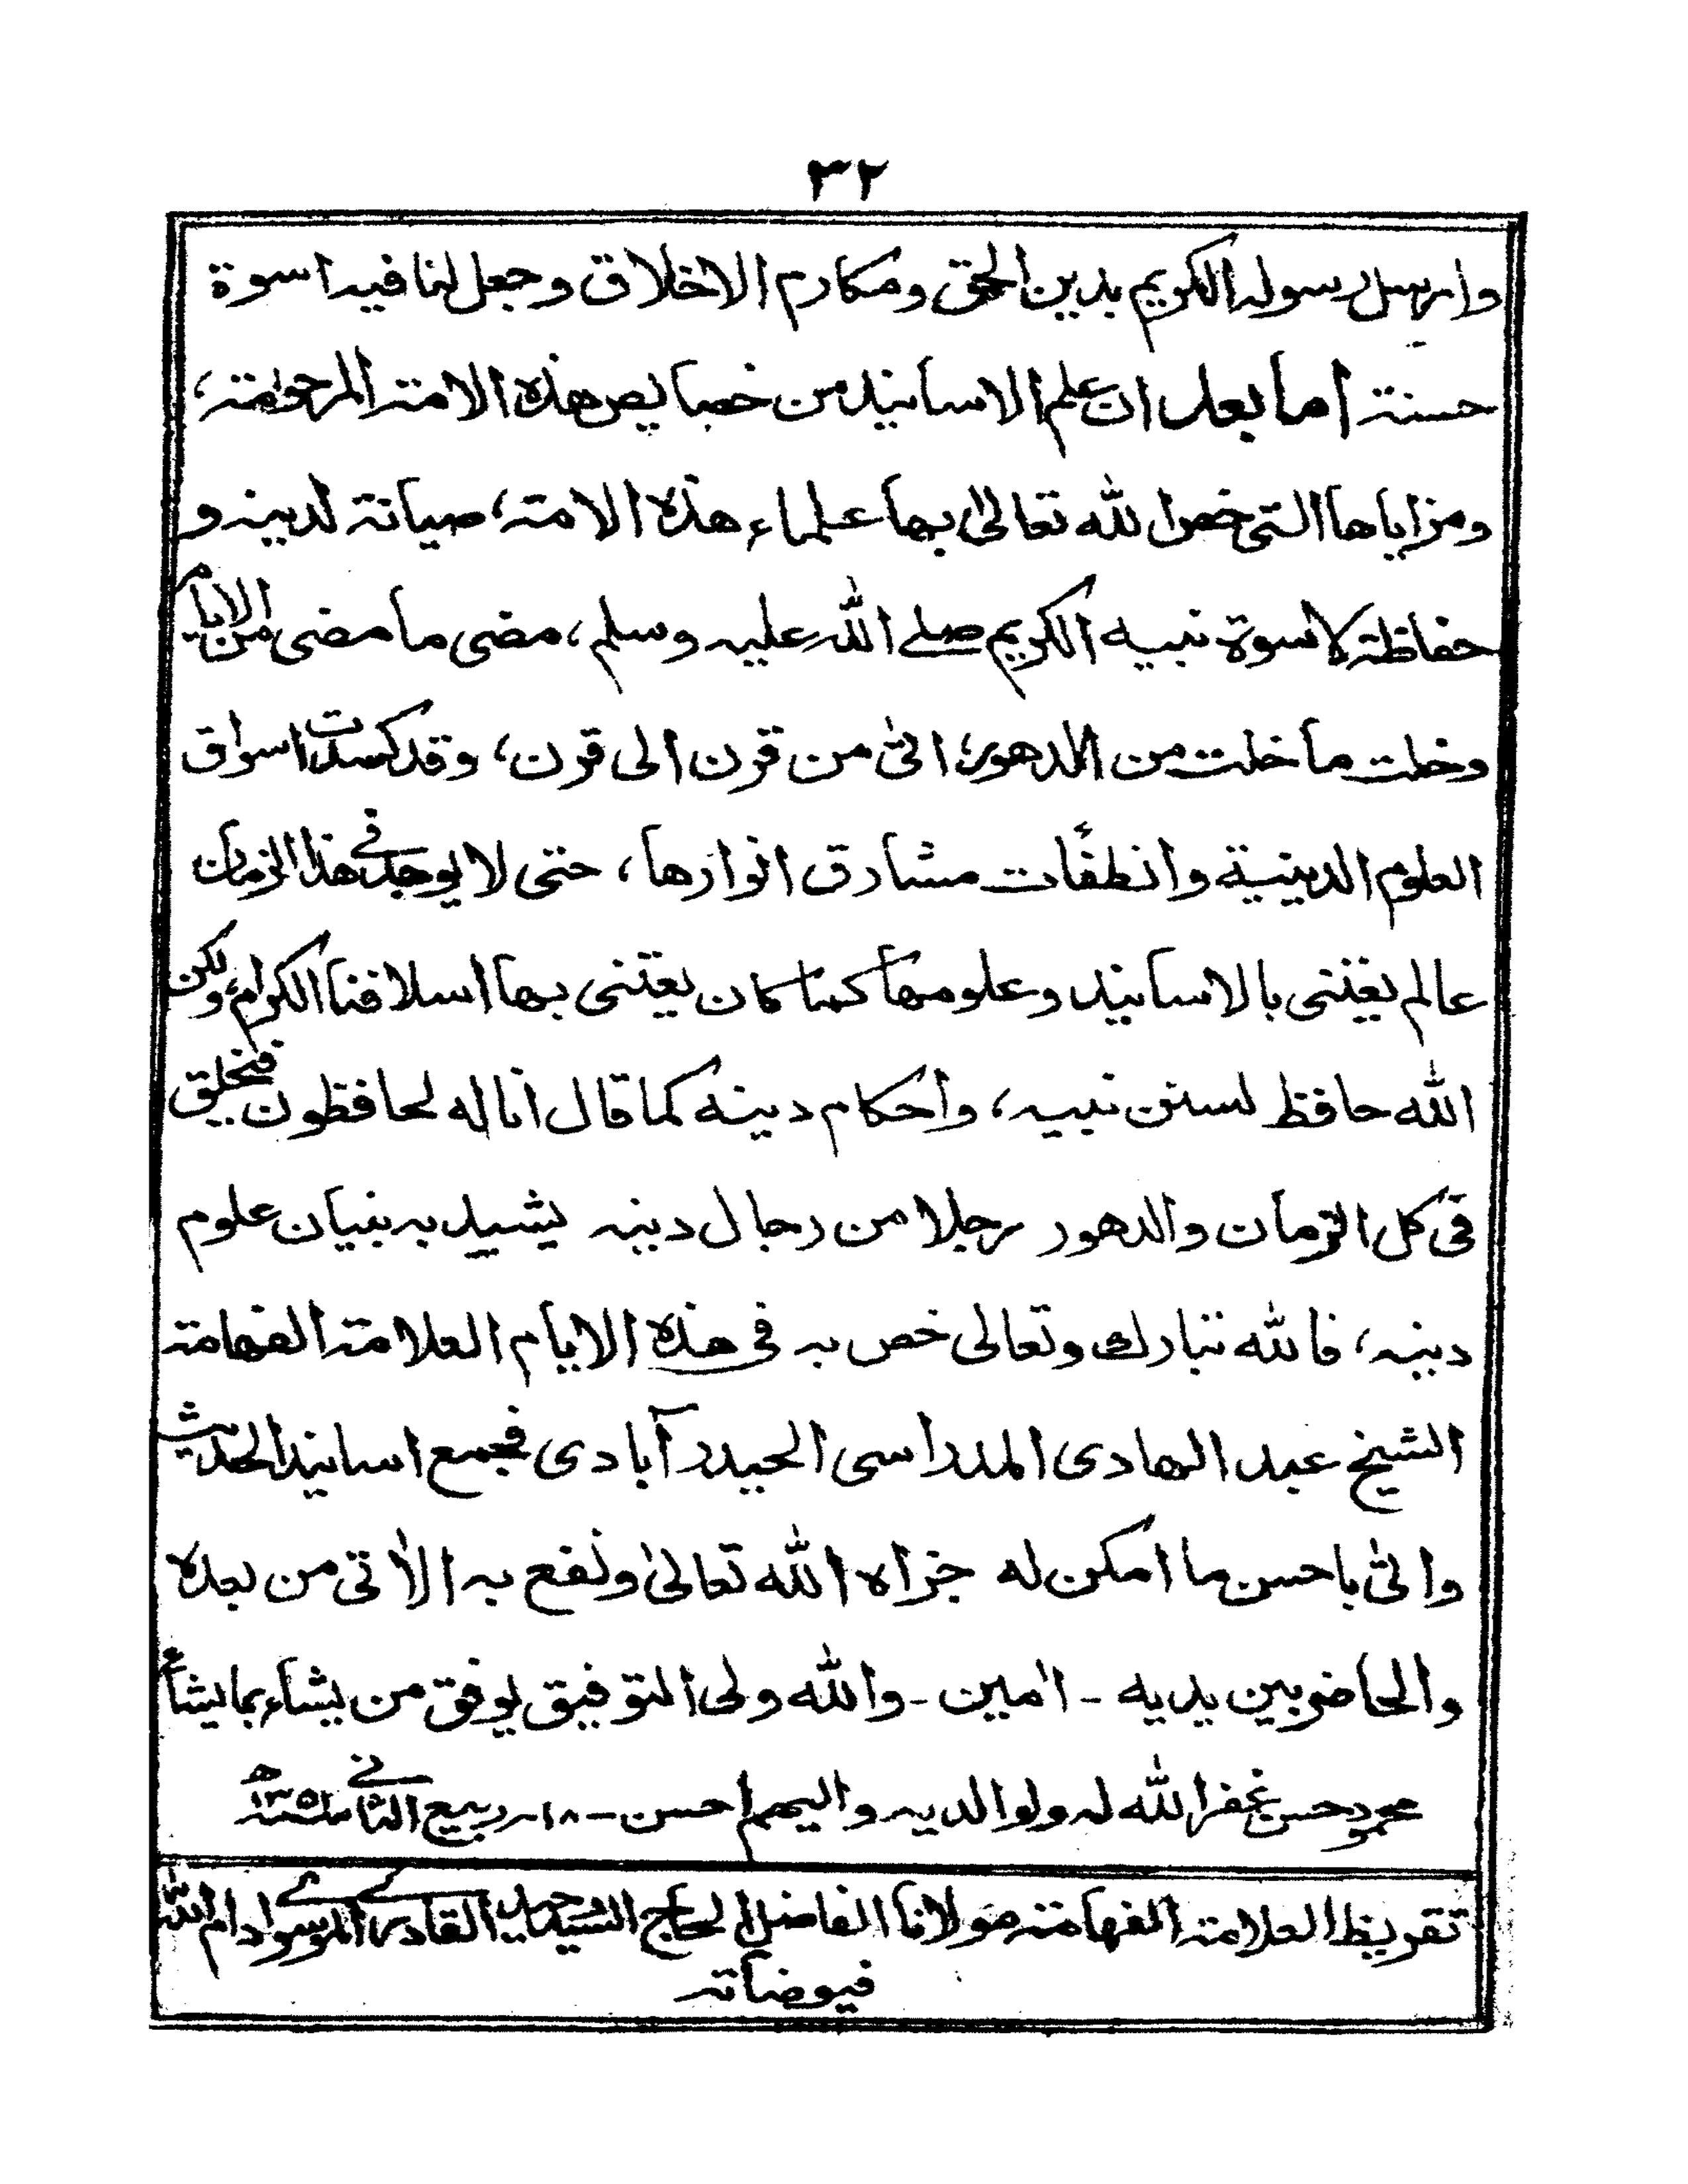 ٣٢
وارسل رسوله الكريم بدين الحق ومكارم الاخلاق وجعل لنا فيه اسوة
حسنة اما بعد ان علم الاسانيد من خصايص هذه الامة المرحومة،
ومزاياها التى خص الله تعالىٰ بها علماء هذه الامة، صيانة لدينه و
حفاظة لاسوة نبيه الكريم صلے الله عليه وسلم، مضى ما مضى من الايام
وخلت ما خلت من الدهور، اتىٰ من قرن الى قرن، وقد كسدت اسواق
العلوم الدينية وانطفأت مشارق انوارها، حتى لا يوجد فى هذا الزمان
عالم يعتنى بالاسانيد وعلومها كما كان يعتنى بها اسلافنا الكرام، ولكن
الله حافظ لسنن نبيه، وأحكام دينه كما قال انا له لحافظون فيخلق
فى كل الزمان والدهور رجلا من رجال دينه يشيد به بنيان علوم
دينه، فالله تبارك وتعالى خص به فى هذه الايام العلامة الفهامة
الشيخ عبد الهادى المدراسى الحيدرآبادى فجمع اسانيد الحديث
واتىٰ باحسن ما امكن له جزاه الله تعالىٰ ونفع به الاٰتى من بعده
والحاضر بين يديه - اٰمين - والله ولى التوفيق يوفق من يشاء بما يشاء
محمود حسن غفر الله له ولوالديه واليهم احسن - ١٨ ر ربيع الثانے سنة ١٣٥١ھ
تقريظ العلامة الفهامة مولانا الفاضل الحاج السيد حميد القادرے الموسوے ادام الله
فيوضاته